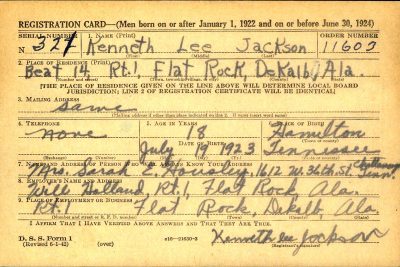 REGISTRATION CARD—(Men born on or after January 1, 1922 and on or before June 30, 1924)
SERIAL NUMBER 1. NAME (Print) ORDER NUMBER
N 327 Kenneth Lee Jackson 11603
2. PLACE OF RESIDENCE (Print)
Beat 14, Rt.1, Flat Rock, DeKalb, Ala.
(Number and street) (Town, township, village, or city) (County) (State)
[THE PLACE OF RESIDENCE GIVEN ON THE LINE ABOVE WILL DETERMINE LOCAL BOARD
JURISDICTION; LINE 2 OF REGISTRATION CERTIFICATE WILL BE IDENTICAL]
3. MAILING ADDRESS
Same
4. TELEPHONE 5. AGE IN YEARS 6. PLACE OF BIRTH
None 18 Hamilton
DATE OF BIRTH (Town or county)
July 19 1923 Tennessee
(Exchange) (Number) (Mo.) (Day) (Yr.) (State or country)
7. NAME AND ADDRESS OF PERSON WHO WILL ALWAYS KNOW YOUR ADDRESS Chattanooga
Mrs. Sarah E. Housley, 1612 W. 36th St. Tenn.
8. EMPLOYER'S NAME AND ADDRESS
Will Holland Rt.1, Flat Rock Ala.
9. PLACE OF EMPLOYMENT OR BUSINESS
Rt.1 Flat Rock, Dekalb, Ala
(Number and street or R. F. D. number) (Town) (County) (State)
I AFFIRM THAT I HAVE VERIFIED ABOVE ANSWERS AND THAT THEY ARE TRUE.
D. S. S. Form 1
(Revised 6-1-42) (over) 16—21630-3 Kenneth lee Jackson
(Registrant's signature)